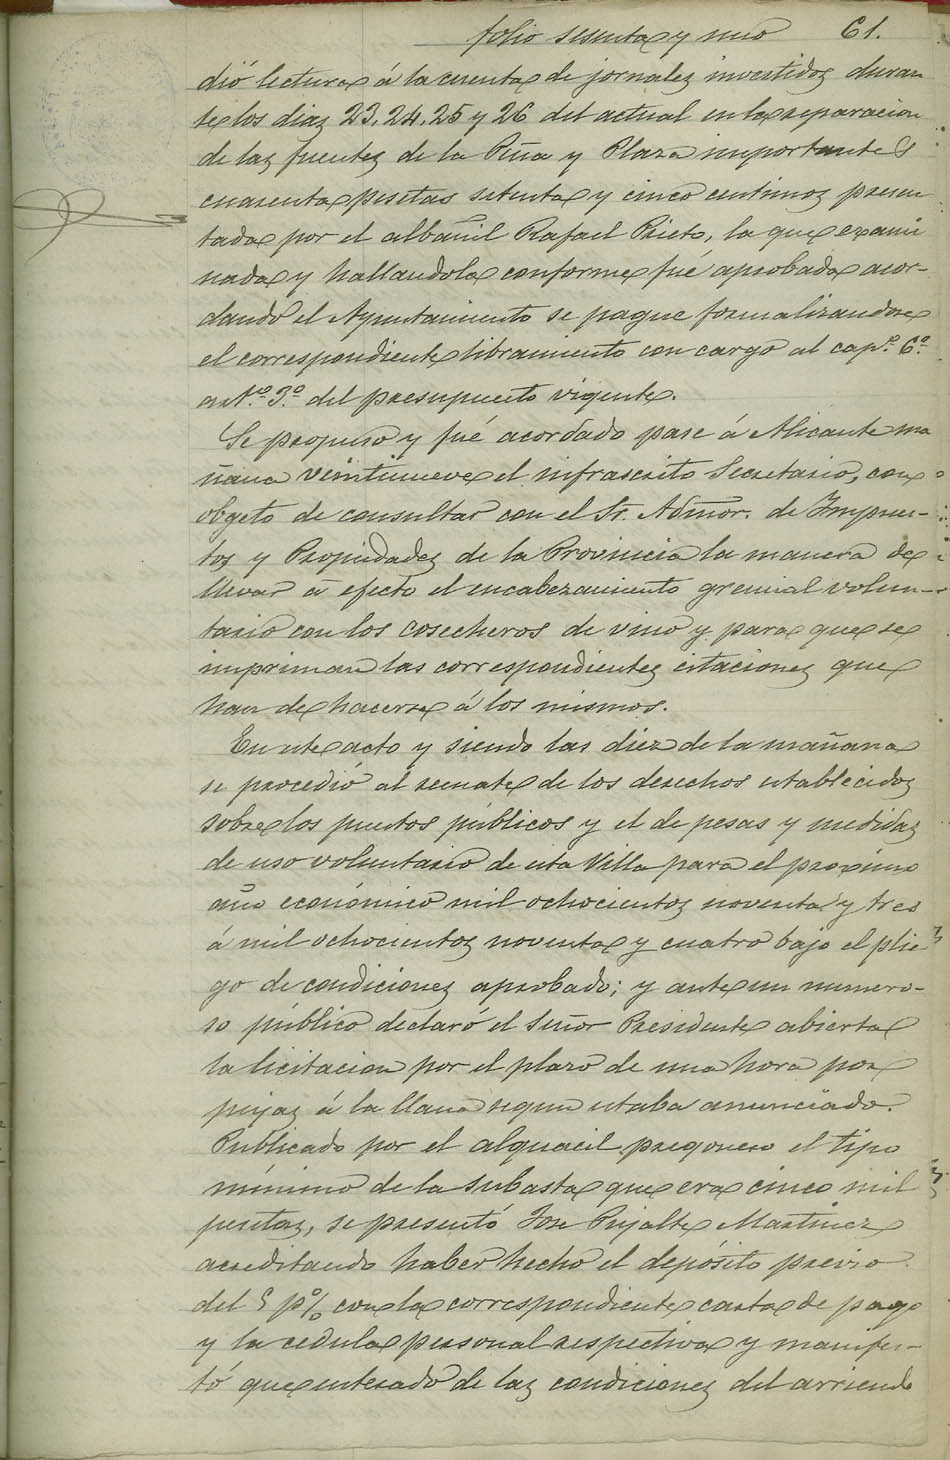 folio sesenta y uno 61.
dió lectura á la cuenta de jornales invertidos duran
te los dias 23, 24, 25 y 26 del actual en la reparacion
de las fuentes de la Piña y Plaza importante
cuarenta pesetas setenta y cinco centimos presen
tada por el albañil Rafael Prieto, la que exami
nada y hallandola conforme fué aprobada acor-
dando el Ayuntamiento se pague formalizandose
el correspondiente libramiento con cargo al capº. 6º.
artº. 3º. del presupuesto vigente.
Se propuso y fué acordado pase á Alicante ma
ñana veintinueve el infrascrito Secretario, con
obgeto de consultar con el Sr. Admor. de Impues-
tos y Propiedades de la Provincia la manera de
llevar á efecto el encabezamiento gremial volun-
tario con los cosecheros de vino y para que se
impriman las correspondientes citaciones que
han de hacerse á los mismos.
En este acto y siendo las diez de la mañana
se procedió al remate de los derechos establecidos
sobre los puestos públicos y el de pesas y medidas
de uso voluntario de esta Villa para el proximo
año económico mil ochocientos noventa y tres
á mil ochocientos noventa y cuatro bajo el plie
go de condiciones aprobado; y ante un numero-
so público declaró el Señor Presidente abierta
la licitacion por el plazo de una hora por
pujas á la llana segun estaba anunciado.
Publicado por el alguacil pregonero el tipo
mínimo de la subasta que era cinco mil
pesetas, se presentó Jose Pujalte Martinez
acreditando haber hecho el depósito previo
del 5 pº% con la correspondiente carta de pago
y la cedula personal respectiva y manifes-
tó que enterado de las condiciones del arriendo